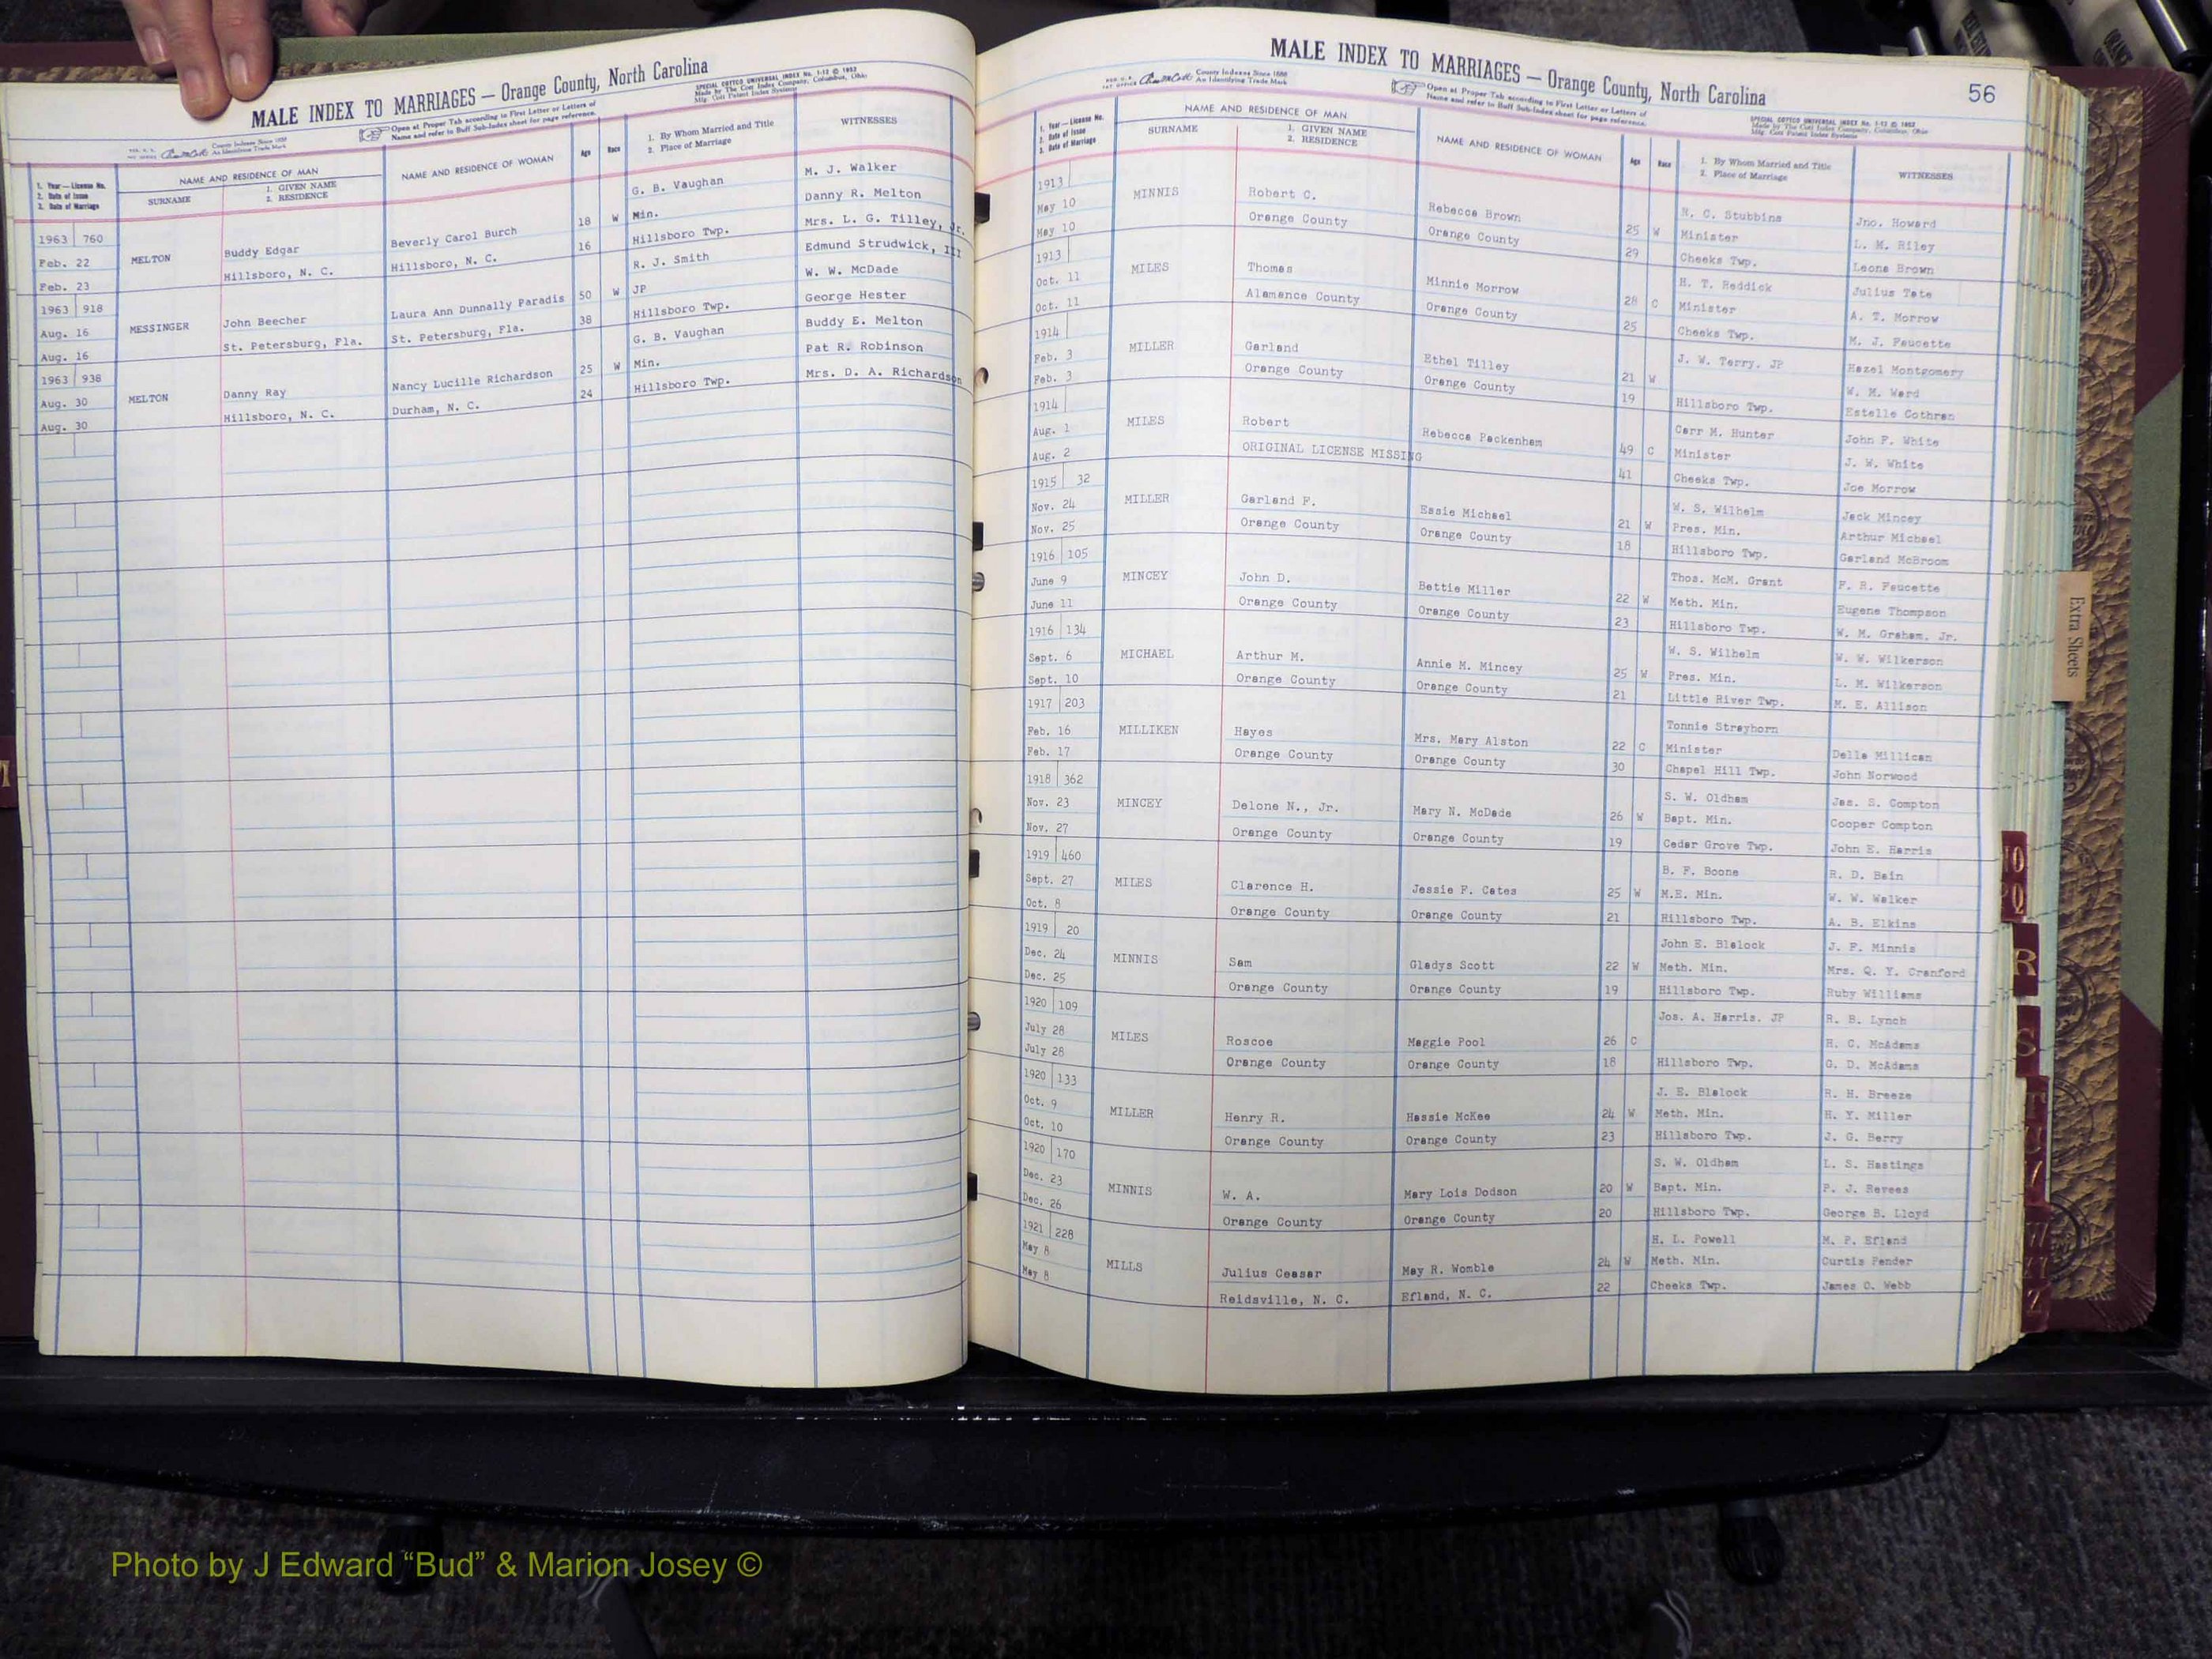 MALE INDEX TO MARRIAGES — Orange County, North Carolina
Open at Proper Tab according to First Letter or Letters of
Name and refer to Buff Sub-Index sheet for page reference.
SPECIAL COTTCO UNIVERSAL INDEX No. 1-12 © 1952
Made by The Cott Index Company, Columbus, Ohio
County Indexes Since 1888
An Identifying Trade Mark
1. Year—License No.
2. Date of Issue
3. Date of Marriage
NAME AND RESIDENCE OF MAN
SURNAME
1. GIVEN NAME
2. RESIDENCE
NAME AND RESIDENCE OF WOMAN
Age
Race
1. By Whom Married and Title
2. Place of Marriage
WITNESSES
1963 760 MELTON Buddy Edgar Beverly Carol Burch 18 W G. B. Vaughan M. J. Walker
Feb. 22 Hillsboro, N. C. Hillsboro, N. C. 16 Min. Danny R. Melton
Feb. 23 Hillsboro Twp. Mrs. L. G. Tilley, Jr.
1963 918 MESSINGER John Beecher Laura Ann Dunnally Paradis 50 W R. J. Smith Edmund Strudwick, III
Aug. 16 St. Petersburg, Fla. St. Petersburg, Fla. 38 JP W. W. McDade
Aug. 16 Hillsboro Twp. George Hester
1963 938 MELTON Danny Ray Nancy Lucille Richardson 25 W G. B. Vaughan Buddy E. Melton
Aug. 30 Hillsboro, N. C. Durham, N. C. 24 Min. Pat R. Robinson
Aug. 30 Hillsboro Twp. Mrs. D. A. Richardson
MALE INDEX TO MARRIAGES — Orange County, North Carolina
56
County Indexes Since 1888
An Identifying Trade Mark
Open at Proper Tab according to First Letter or Letters of
Name and refer to Buff Sub-Index sheet for page reference.
SPECIAL COTTCO UNIVERSAL INDEX No. 1-12 © 1952
Made by The Cott Index Company, Columbus, Ohio
1. Year—License No.
2. Date of Issue
3. Date of Marriage
NAME AND RESIDENCE OF MAN
SURNAME
1. GIVEN NAME
2. RESIDENCE
NAME AND RESIDENCE OF WOMAN
Age
Race
1. By Whom Married and Title
2. Place of Marriage
WITNESSES
1913 MINNIS Robert C. Rebecca Brown 25 W R. C. Stubbins Jno. Howard
May 10 Orange County Orange County 29 Minister L. M. Riley
May 10 Cheeks Twp. Leona Brown
1913 MILES Thomas Minnie Morrow 28 C H. T. Reddick Julius Tate
Oct. 11 Alamance County Orange County 25 Minister A. T. Morrow
Oct. 11 Cheeks Twp. M. J. Faucette
1914 MILLER Garland Ethel Tilley 21 W J. W. Terry, JP Hazel Montgomery
Feb. 3 Orange County Orange County 19 W. M. Ward
Feb. 3 Hillsboro Twp. Estelle Cothran
1914 MILES Robert Rebecca Packenham 49 C Carr M. Hunter John F. White
Aug. 1 ORIGINAL LICENSE MISSING 41 Minister J. W. White
Aug. 2 Cheeks Twp. Joe Morrow
1915 32 MILLER Garland F. Essie Michael 21 W W. S. Wilhelm Jack Mincey
Nov. 24 Orange County Orange County 18 Pres. Min. Arthur Michael
Nov. 25 Hillsboro Twp. Garland McBroom
1916 105 MINCEY John D. Bettie Miller 22 W Thos. McM. Grant F. R. Faucette
June 9 Orange County Orange County 23 Meth. Min. Eugene Thompson
June 11 Hillsboro Twp. W. M. Graham, Jr.
1916 134 MICHAEL Arthur M. Annie M. Mincey 25 W W. S. Wilhelm W. W. Wilkerson
Sept. 6 Orange County Orange County 21 Pres. Min. L. M. Wilkerson
Sept. 10 Little River Twp. M. E. Allison
1917 203 MILLIKEN Hayes Mrs. Mary Alston 22 C Tonnie Strayhorn
Feb. 16 Orange County Orange County 30 Minister Della Millican
Feb. 17 Chapel Hill Twp. John Norwood
1918 362 MINCEY Delone N., Jr. Mary N. McDade 26 W S. W. Oldham Jas. S. Compton
Nov. 23 Orange County Orange County 19 Bapt. Min. Cooper Compton
Nov. 27 Cedar Grove Twp. John E. Harris
1919 460 MILES Clarence H. Jessie F. Cates 25 W B. F. Boone R. D. Bain
Sept. 27 Orange County Orange County 21 M.E. Min. W. W. Walker
Oct. 8 Hillsboro Twp. A. B. Elkins
1919 20 MINNIS Sam Gladys Scott 22 W John E. Blalock J. F. Minnis
Dec. 24 Orange County Orange County 19 Meth. Min. Mrs. Q. Y. Cranford
Dec. 25 Hillsboro Twp. Ruby Williams
1920 109 MILES Roscoe Maggie Pool 26 C Jos. A. Harris, JP R. B. Lynch
July 28 Orange County Orange County 18 H. C. McAdams
July 28 Hillsboro Twp. G. D. McAdams
1920 133 MILLER Henry R. Hassie McKee 24 W J. E. Blalock R. H. Breeze
Oct. 9 Orange County Orange County 23 Meth. Min. H. Y. Miller
Oct. 10 Hillsboro Twp. J. G. Berry
1920 170 MINNIS W. A. Mary Lois Dodson 20 W S. W. Oldham L. S. Hastings
Dec. 23 Orange County Orange County 20 Bapt. Min. P. J. Revees
Dec. 26 Hillsboro Twp. George B. Lloyd
1921 228 MILLS Julius Ceasar May R. Womble 24 W H. L. Powell M. P. Efland
May 8 Reidsville, N. C. Efland, N. C. 22 Meth. Min. Curtis Pender
May 8 Cheeks Twp. James O. Webb
Extra Sheets
R
S
Photo by J Edward “Bud” & Marion Josey ©